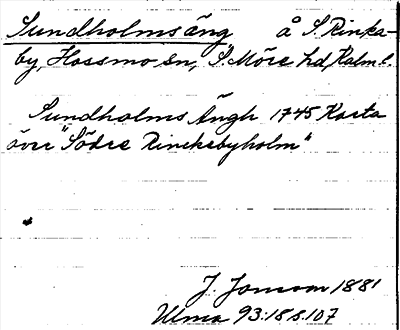 Sundholmsäng å S. Rinka-
by, Hossmo sn, S. Möre hd, Kalm l.
Sundholms Ängh 1745 Karta
över "Södre Rinckabyholm"
J. Jonsson 1881
Ulma 93:18 s. 107